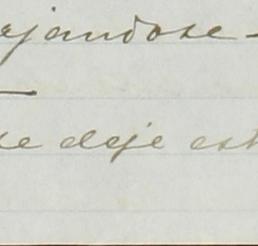 ajandose -
se deje est